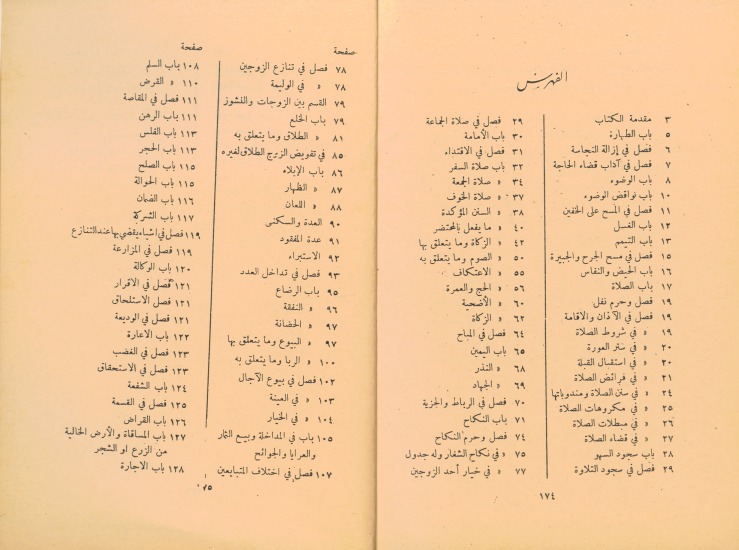 الفهرس
٣ مقدمة الكتاب
٥ باب الطهارة
٦ فصل في إزالة النجاسة
٧ فصل في آداب قضاء الحاجة
٨ باب الوضوء
١٠ باب نواقض الوضوء
١١ فصل في المسح على الخفين
١٢ باب الغسل
١٣ باب التيمم
١٥ فصل في مسح الجرح والجبيرة
١٦ باب الحيض والنفاس
١٧ باب الصلاة
١٩ فصل وحرم نفل
١٩ فصل في الآذان والاقامة
١٩ « في شروط الصلاة
٢٠ « في ستر العورة
٢٠ « في استقبال القبلة
٢١ « في فرائض الصلاة
٢٤ « في سنن الصلاة ومندوباتها
٢٥ « في مكروهات الصلاة
٢٦ « في مبطلات الصلاة
٢٧ « في قضاء الصلاة
٢٨ باب سجود السهو
٢٩ فصل في سجود التلاوة
٢٩ فصل في صلاة الجماعة
٣٠ باب الأمامة
٣١ فصل في الاقتداء
٣٢ باب صلاة السفر
٣٤ « صلاة الجمعة
٣٧ « صلاة الخوف
٣٨ « السنن المؤكدة
٤٠ « ما يفعل بالمحتضر
٤٢ « الزكاة وما يتعلق بها
٥٠ « الصوم وما يتعلق به
٥٥ « الاعتكاف
٥٦ « الحج والعمرة
٦٠ « الأضحية
٦٢ « الزكاة
٦٤ فصل في المباح
٦٥ باب اليمين
٦٨ « النذر
٦٩ « الجهاد
٧٠ فصل في الرباط والجزية
٧١ باب النكاح
٧٤ فصل وحرم النكاح
٧٥ « في نكاح الشغار وله جدول
٧٧ « في خيار أحد الزوجين
١٧٤
صفحة
٧٨ فصل في تنازع الزوجين
٧٨ « في الوليمة
٧٩ القسم بين الزوجات والنشوز
٧٩ باب الخلع
٨١ « الطلاق وما يتعلق به
٨٥ في تفويض الزوج الطلاق لغيره
٨٦ باب الإيلاء
٨٧ « الظهار
٨٨ « اللعان
٩٠ العدة والسكنى
٩١ عدة المفقود
٩٢ الاستبراء
٩٣ فصل في تداخل العدد
٩٥ باب الرضاع
٩٦ « النفقة
٩٧ « الحضانة
٩٧ « البيوع وما يتعلق بها
١٠٠ « الربا وما يتعلق به
١٠٢ فصل في بيوع الآجال
١٠٣ « في العينة
١٠٤ « في الخيار
١٠٥ باب في المداخلة وبيع الثمار
والعرايا والجوائح
١٠٧ فصل في اختلاف المتبايعين
صفحة
١٠٨ باب السلم
١١٠ « القرض
١١١ فصل في المقاصة
١١١ باب الرهن
١١٣ باب الفلس
١١٣ باب الحجر
١١٥ باب الصلح
١١٥ باب الحوالة
١١٦ باب الضمان
١١٧ باب الشركة
١١٩ فصل في اشياء يقضى بها عند التنازع
١١٩ فصل في المزارعة
١٢٠ باب الوكالة
١٢١ فصل في الاقرار
١٢١ فصل الاستلحاق
١٢١ فصل في الوديعة
١٢٢ باب الاعارة
١٢٣ فصل في الغصب
١٢٣ فصل في الاستحقاق
١٢٤ باب الشفعة
١٢٥ فصل في القسمة
١٢٦ باب القراض
١٢٧ باب المساقاة والأرض الخالية
من الزرع او الشجر
١٢٨ باب الاجارة